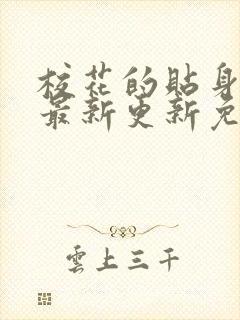 校花的貼身
最新更新免
雲上三千